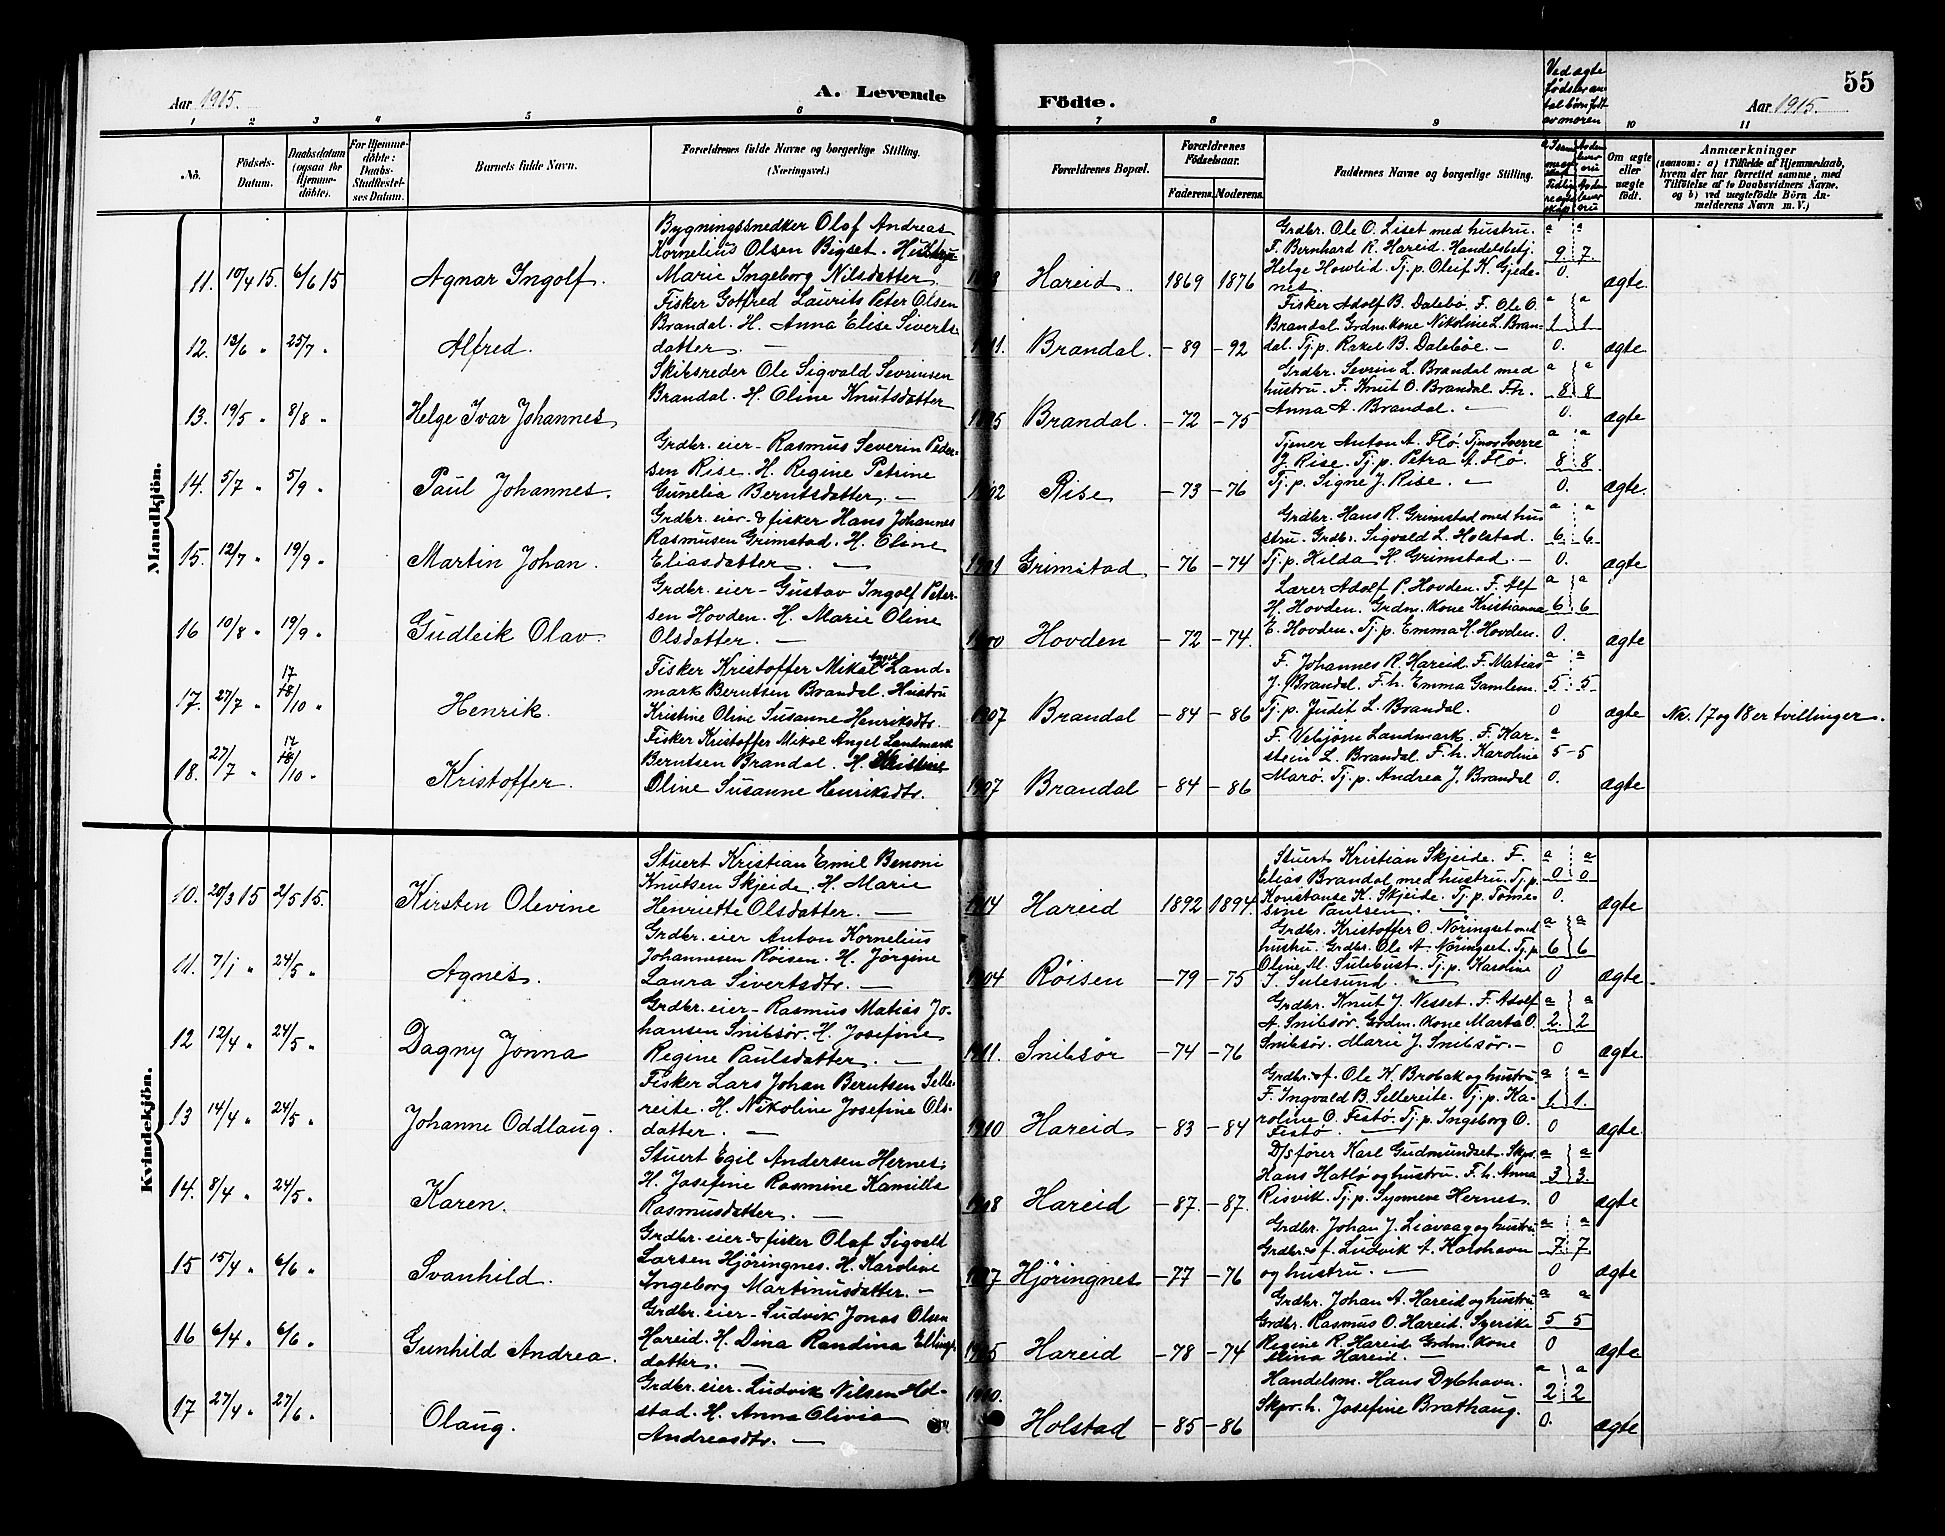 Aar 1915.
A. Levende
Födte.
Ved ægte
fødsler an-
tal børn født
av moren
Aar 1915.
55
1 2 3 4 5 6 7 8 9 10 11
No.
Födsels-
Datum.
Daabsdatum
(ogsaa for
Hjemme-
döbte).
For Hjemme-
döbte:
Daabs-
Stadfæstel-
ses Datum.
Barnets fulde Navn.
Forældrenes fulde Navne og borgerlige Stilling.
(Næringsvei.)
Forældrenes Bopæl.
Forældrenes
Födselsaar.
Faderens. Moderens.
Faddernes Navne og borgerlige Stilling.
Om ægte
eller
uægte
födt.
Anmærkninger
(saasom: a) i Tilfælde af Hjemmedaab,
hvem der har forrettet samme, med
Tilföielse af to Daabsvidners Navne,
og b) ved uægtefödte Börn An-
melderens Navn m. V.)
Mandkjön.
11. 10/4 15. 6/6 15 Agnar Ingolf.
Bygningssnedker Olaf Andreas
Kornelius Olsen Bigset. Hustru
Marie Ingeborg Nilsdatter.
Hareid. 1869 1876
Grdbr. Ole O. Liset med hustru.
F. Bernhard R. Hareid. Handelsbetj.
Helge Howlid. Tj. p. Oleif K. Gjede-
nes.
a a
9. 7.
0.
ægte.
12. 13/6 " 25/7 " Alfred.
Fisker Gotfred Laurits Peter Olsen
Brandal. H. Anna Elise Siverts-
datter. —
1911. Brandal. - 89 - 92
Fisker Adolf B. Dalebø. F. Ole O.
Brandal. Grdm. kone Nikoline L. Bran-
dal. Tj. p. Rakel B. Dalebøe. —
a a
1 1
0.
ægte
13. 19/5 " 8/8 " Helge Ivar Johannes
Skibsreder Ole Sigvald Sevrinsen
Brandal. H. Oline Knutsdatter
1895 Brandal. - 72 - 75
Grdbr. Sevrin L. Brandal med
hustru. F. Knut O. Brandal. F.h.
Anna A. Brandal. —
a a
8 8
0.
ægte
14. 5/7 " 5/9 " Paul Johannes.
Grdbr. eier - Rasmus Severin Peder-
sen Rise. H. Regine Petrine
Gunelia Berntsdatter. —
1902 Rise - 73 - 76
Tjener Anton A. Flø. Tjener Sverre
J. Rise. Tj. p. Petra A. Flø.
Tj. p. Signe J. Rise. —
a a
8 8
0.
ægte.
15. 12/7 " 19/9 " Martin Johan.
Grdbr. eier - & fisker Hans Johannes
Rasmusen Grimstad. H. Oline
Eliasdatter. —
1901 Grimstad. - 76 - 74
Grdbr. Hans R. Grimstad med hus
stru. Grdbr. Sigvald L. Holstad.
Tj. p. Hilda H. Grimstad. —
a a
6. 6.
0.
ægte
16 10/8 " 19/9 " Gudleik Olav.
Grdbr. eier - Gustav Ingolf Peter-
sen Hovden. H. Marie Oline
Olsdatter. —
1900 Hovden - 72 - 74.
Lærer Adolf P. Hovden. F. Alf
H. Hovden. Grdm. kone Kristianna
E. Hovden. Tj. p. Emma H. Hovden.
a a
6 6
0.
ægte
17. 27/7 " 17 18/10 " Henrik.
Fisker Kristoffer Mikal Angel Land-
mark Berntsen Brandal. Hustru
Kristine Oline Susanne Henriksdtr.
1907 Brandal - 84 - 86
F. Johannes R. Hareid. F. Matias
J. Brandal. F.h. Emma Gamlem.
Tj. p. Judit L. Brandal.
a a
5 5
0
ægte Nr. 17 og 18 er tvillinger.
18. 27/7 " 17 18/10 " Kristoffer.
Fisker Kristoffer Mikal Angel Landmark
Berntsen Brandal. H. Kristine
Oline Susanne Henriksdtr.
1907 Brandal - 84 - 86
F. Vebjørn Landmark. F. Kar-
stein L. Brandal. F.h. Karoline
Marø. Tj. p. Andrea J. Brandal
a
5 - 5
0.
ægte
Kvindekjön.
10. 20/3 15 2/5 15. Kirsten Olevine
Stuert Kristian Emil Benoni
Knutsen Skjeide. H. Marie
Henriette Olsdatter. —
1914 Hareid 1892 1894.
Stuert Kristian Skjeide. F.
Elias Brandal med hustru. Tj. p.
Konstanse K. Skjeide. Tj. p. Tomre-
sine Paulsen. —
a a
0 0
0.
ægte
11. 7/1 " 24/5 " Agnes.
Grdbr. eier Anton Kornelius
Johannesen Røisen. H. Jørgine
Laura Sivertsdtr. —
1904 Røisen - 79 - 75
Grdbr. Kristoffer O. Nøringset med
hustru. Grdbr. Ole A. Nøringset. Tj. p.
Oline M. Sulebust. Tj. p. Karoline
S. Sulesund. —
a a
6 6
0
ægte.
12 12/4 " 24/5 " Dagny Jonna
Grdbr. eier - Rasmus Matias Jo-
hansen Snibsør. H. Josefine
Regine Paulsdatter. —
1911. Snibsør - 74 - 76
Grdbr. Knut J. Nesset. F. Adolf
A. Snibsør. Grdm. kone Marta O.
Snibsør. Marie J. Snibsør. —
a a
2. 2
0
ægte.
13 14/4 " 24/5 " Johanne Oddlaug.
Fisker Lars Johan Berntsen Selle-
reite. H. Nikoline Josefine Ols-
datter. —
1910 Hareid - 83 - 84
Grdbr. sf. Ole K. Brobak og hustru
F. Ingvald B. Sellereite. Tj. p. Ka-
roline O. Festø. Tj. p. Ingeborg O.
Festø. —
a a
1. 1.
0
ægte.
14. 8/4 " 24/5 " Karen.
Stuert Egil Andersen Hernes.
H. Josefine Rasmine Kamilla
Rasmusdatter. —
1908 Hareid - 87. - 87.
D/sfører Karl Gudmundset. Skpr.
Hans Hatlø og hustru. F.h. Anna
Risvik. Tj. p. Synneve Hernes.
a a
3 3.
0
ægte
15 15/4 " 6/6 " Svanhild.
Grdbr. eier - & fisker Olaf Sigvald
Larsen Hjøringnes. H. Karoline
Ingeborg Martinusdatter. —
1897 Hjøringnes - 77 - 76
Grdbr. Johan J. Liavaag og hustru
Grdbr. sf. Ludvik A. Kalshavn
og hustru. —
a a
7 7
0
ægte
16 6/4 " 6/6 " Gunhild Andrea.
Grdbr. eier - Ludvik Jonas Olsen
Hareid. H. Dina Randina Ellings-
datter. —
1905 Hareid - 78 - 74
Grdbr. Johan A. Hareid og hustru
Grdbr. Rasmus O. Hareid. Syerske
Regine R. Hareid. Grdm. kone
Elina Hareid. —
a a
5 5
0
ægte
17 27/4 " 27/6 " Olaug.
Grdbr. eier - Ludvik Nilsen Hol-
stad. H. Anna Olivia
Andreasdtr. —
1910. Holstad - 85 - 86
Handelsm. Hans Dybhavn.
Skpr. h. Josefine Brathaug.
a a
2 2
0.
ægte